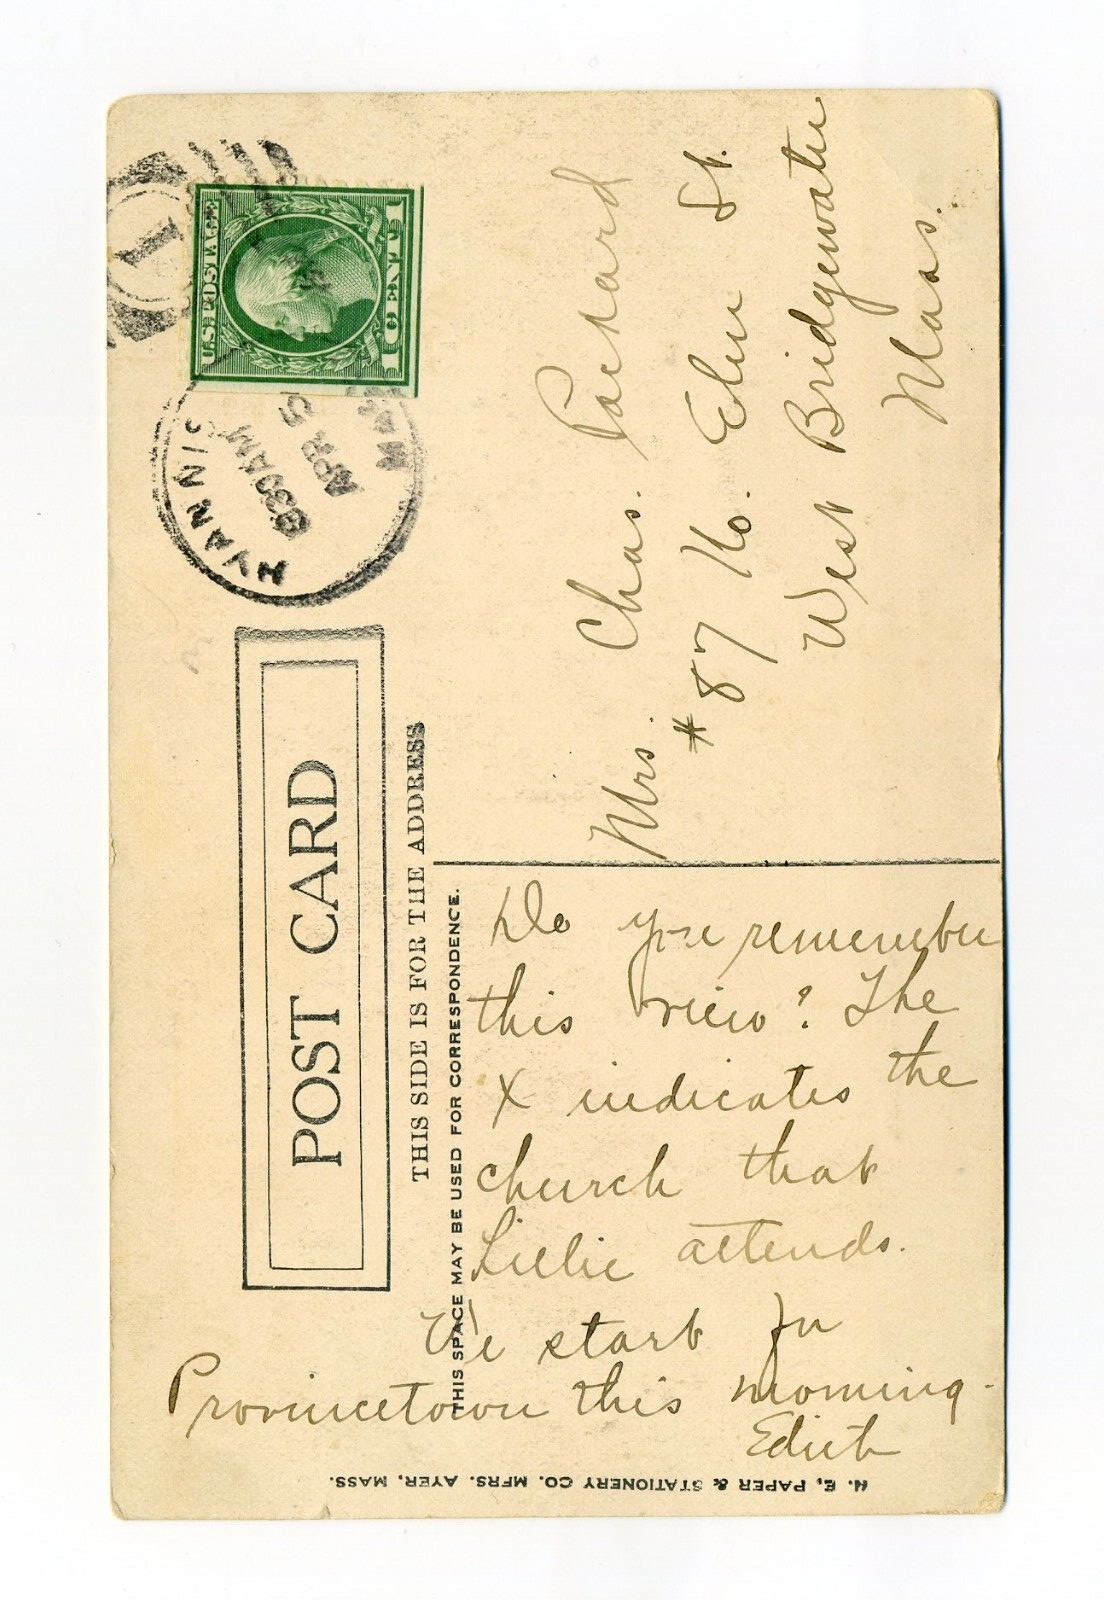 POST CARD
THIS SIDE IS FOR THE ADDRESS
THIS SPACE MAY BE USED FOR CORRESPONDENCE.
U.S. POSTAGE
1 CENT 1
1
HYANNIS
630 AM
APR 5
MASS
Mrs. Chas. Packard
#87 No. Elm St.
West Bridgewater
Mass.
Do you remember
this view? The
X indicates the
church that
Lillie attends.
We start for
Provincetown this morning.
Edith
N. E. PAPER & STATIONERY CO. MFRS. AYER, MASS.